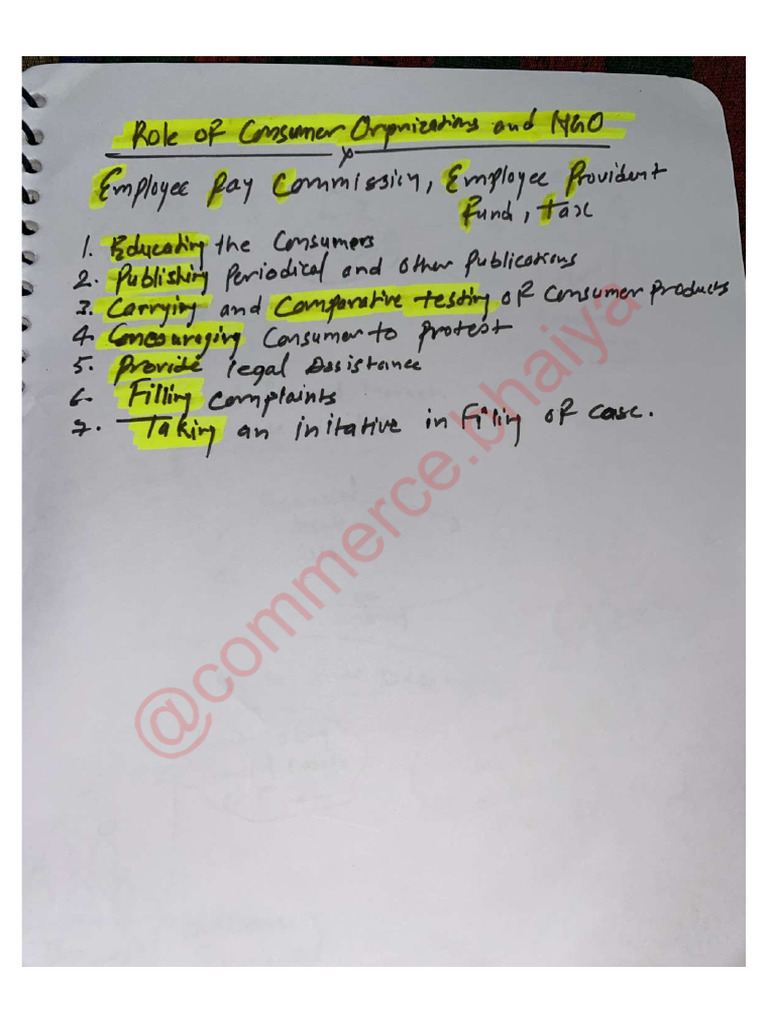 Role of Consumer Orgnizations and NGO
Employee Pay Commission, Employee Provident
Fund, Tax
1. Educating the Consumers
2. Publishing Periodical and Other Publications
3. Carrying and Comparative testing of Consumer Products
4. Encouraging Consumer to Protest
5. Provide legal Assistance
6. Filling Complaints
7. Taking an initative in Filing of case.
@commerce.bhaiya